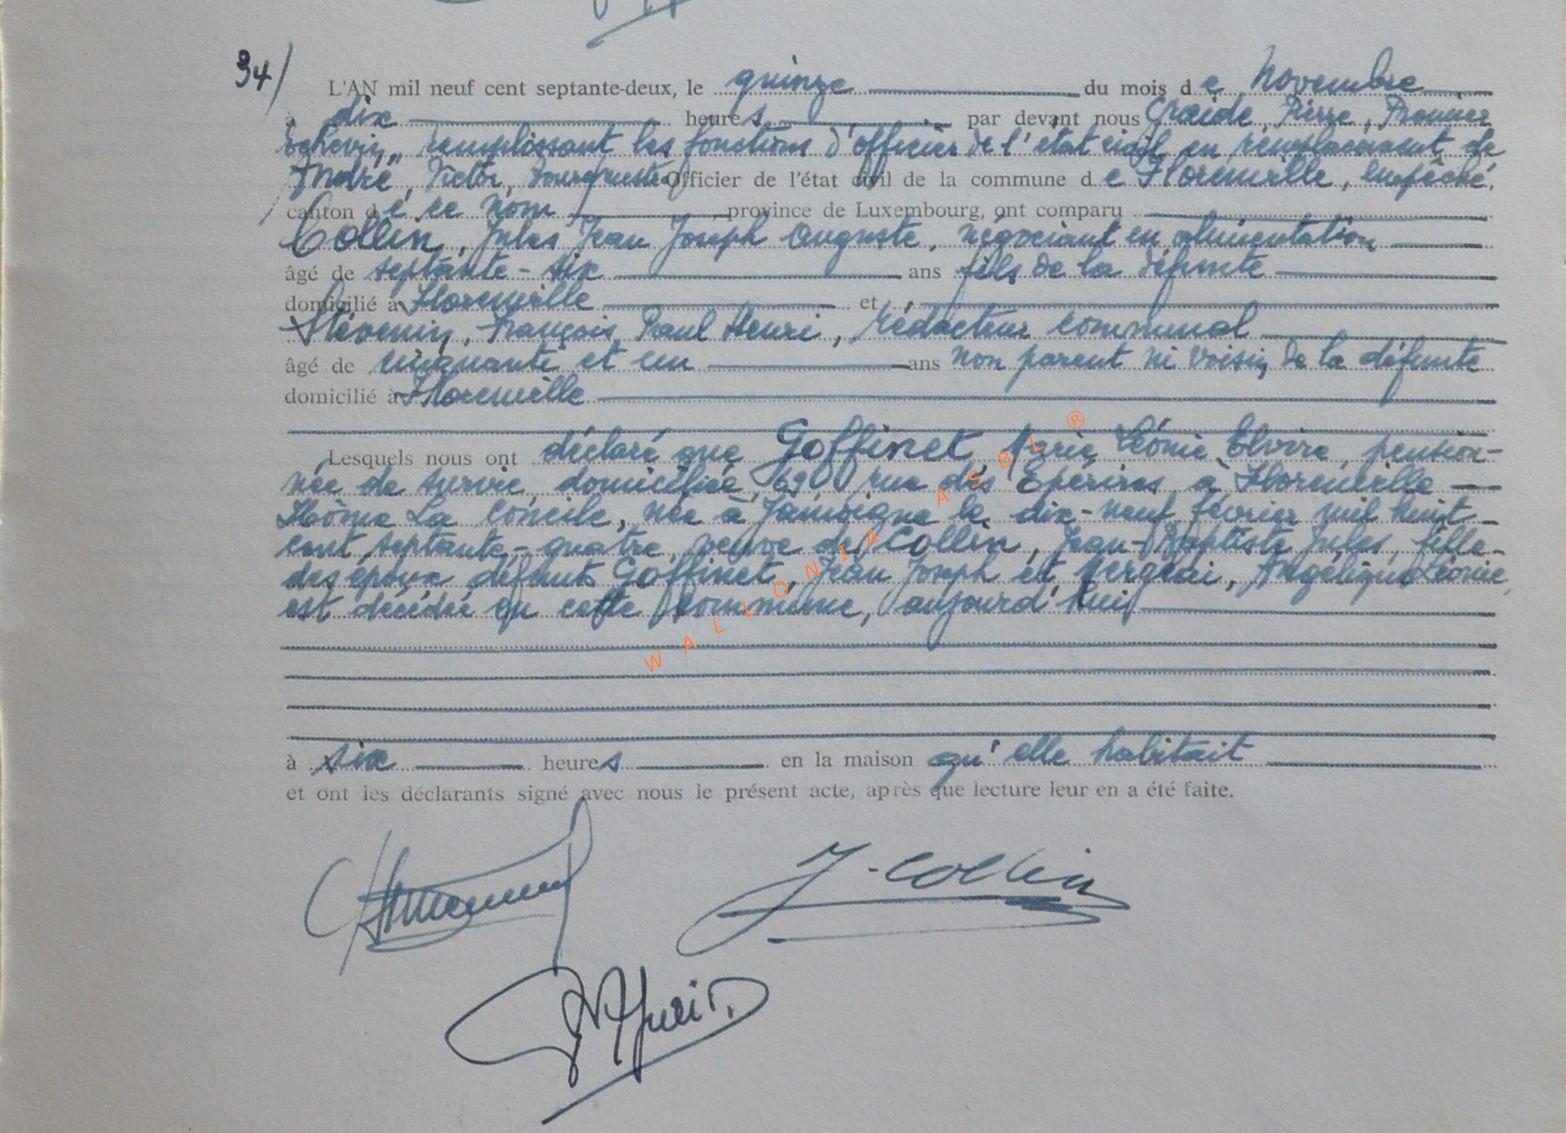 34/
L'AN mil neuf cent septante-deux, le quinze du mois de Novembre
à dix heures, par devant nous Graide, Pierre, Premier
Echevin, remplissant les fonctions d'officier de l'état civil en remplacement de
André, Victor, Officier de l'état civil de la commune de Florenville, empêché,
canton de ce nom province de Luxembourg, ont comparu
Collin, Jules Jean Joseph Auguste, négociant en alimentation
âgé de septante-six ans fils de la défunte
domicilié à Florenville et,
Stévenin, François Paul Henri, rédacteur communal
âgé de cinquante et un ans non parent ni voisin de la défunte
domicilié à Florenville
Lesquels nous ont déclaré que Goffinet, Marie Léonie Elvire, pension-
née de survie, domiciliée, rue des Epérires à Florenville
Home La Concile, née à Jamoigne le dix-neuf février mil huit
cent septante-quatre, veuve de Collin, Jean-Baptiste Jules, fille
des époux défunts Goffinet, Jean Joseph et Angélique Léonie,
est décédée en cette commune, aujourd'hui
à six heures en la maison qu'elle habitait
et ont les déclarants signé avec nous le présent acte, après que lecture leur en a été faite.
J. Collin
WALLONIA ASBL ®